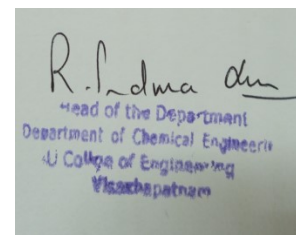 R.
Head of the Department
Department of Chemical Engineerin
U College of Engineering
Visakhapatnam